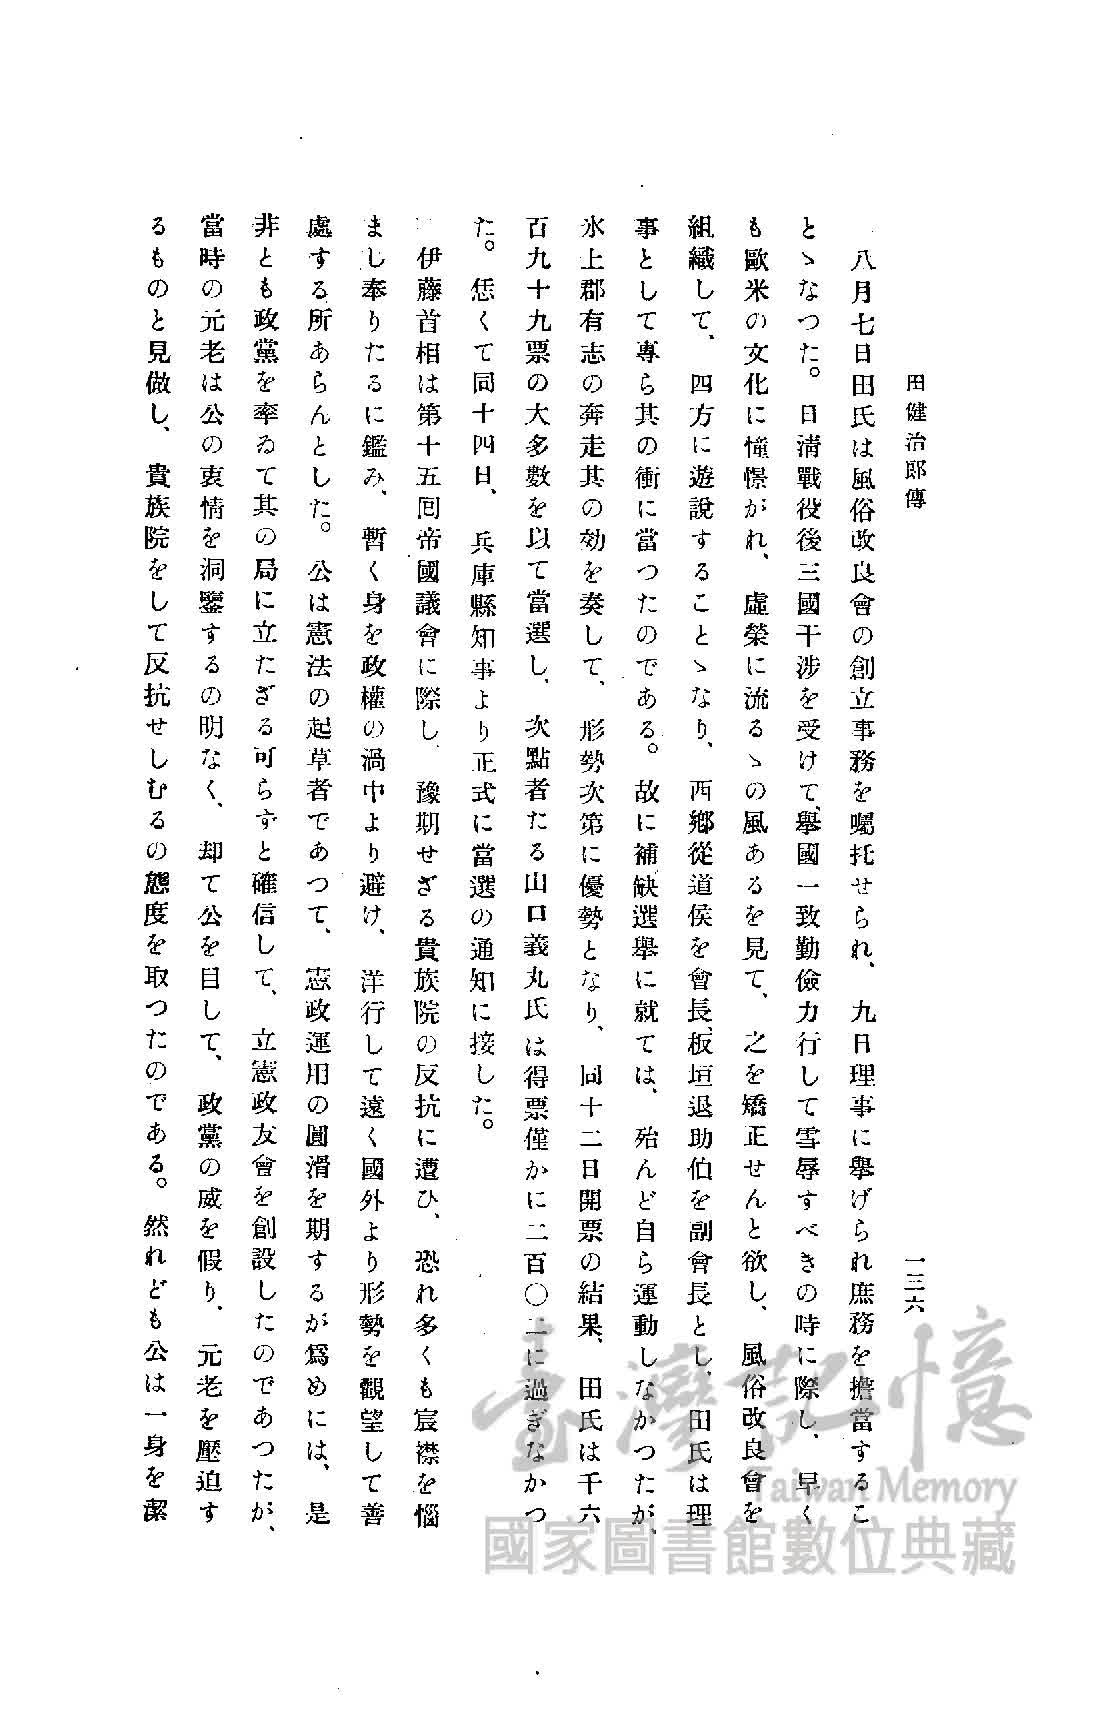 田健治郎傳
一三六
八月七日田氏は風俗改良會の創立事務を囑托せられ、九日理事に擧げられ庶務を擔當するこ
とゝなつた。日淸戰役後三國干涉を受けて、擧國一致勤儉力行して雪辱すべきの時に際し、早く
も歐米の文化に憧憬がれ、虛榮に流るゝの風あるを見て、之を矯正せんと欲し、風俗改良會を
組織して、四方に遊說することゝなり、西鄕從道侯を會長、板垣退助伯を副會長とし、田氏は理
事として專ら其の衝に當つたのである。故に補缺選擧に就ては、殆んど自ら運動しなかつたが、
氷上郡有志の奔走其の効を奏して、形勢次第に優勢となり、同十二日開票の結果、田氏は千六
百九十九票の大多數を以て當選し、次點者たる山口義丸氏は得票僅かに二百〇二に過ぎなかつ
た。恁くて同十四日、兵庫縣知事より正式に當選の通知に接した。
伊藤首相は第十五囘帝國議會に際し、豫期せざる貴族院の反抗に遭ひ、恐れ多くも宸襟を惱
まし奉りたるに鑑み、暫く身を政權の渦中より避け、洋行して遠く國外より形勢を觀望して善
處する所あらんとした。公は憲法の起草者であつて、憲政運用の圓滑を期するが爲めには、是
非とも政黨を率ゐて其の局に立たざる可らずと確信して、立憲政友會を創設したのであつたが、
當時の元老は公の衷情を洞鑒するの明なく、却て公を目して、政黨の威を假り、元老を壓迫す
るものと見做し、貴族院をして反抗せしむるの態度を取つたのである。然れども公は一身を潔
臺灣記憶
Taiwan Memory
國家圖書館數位典藏